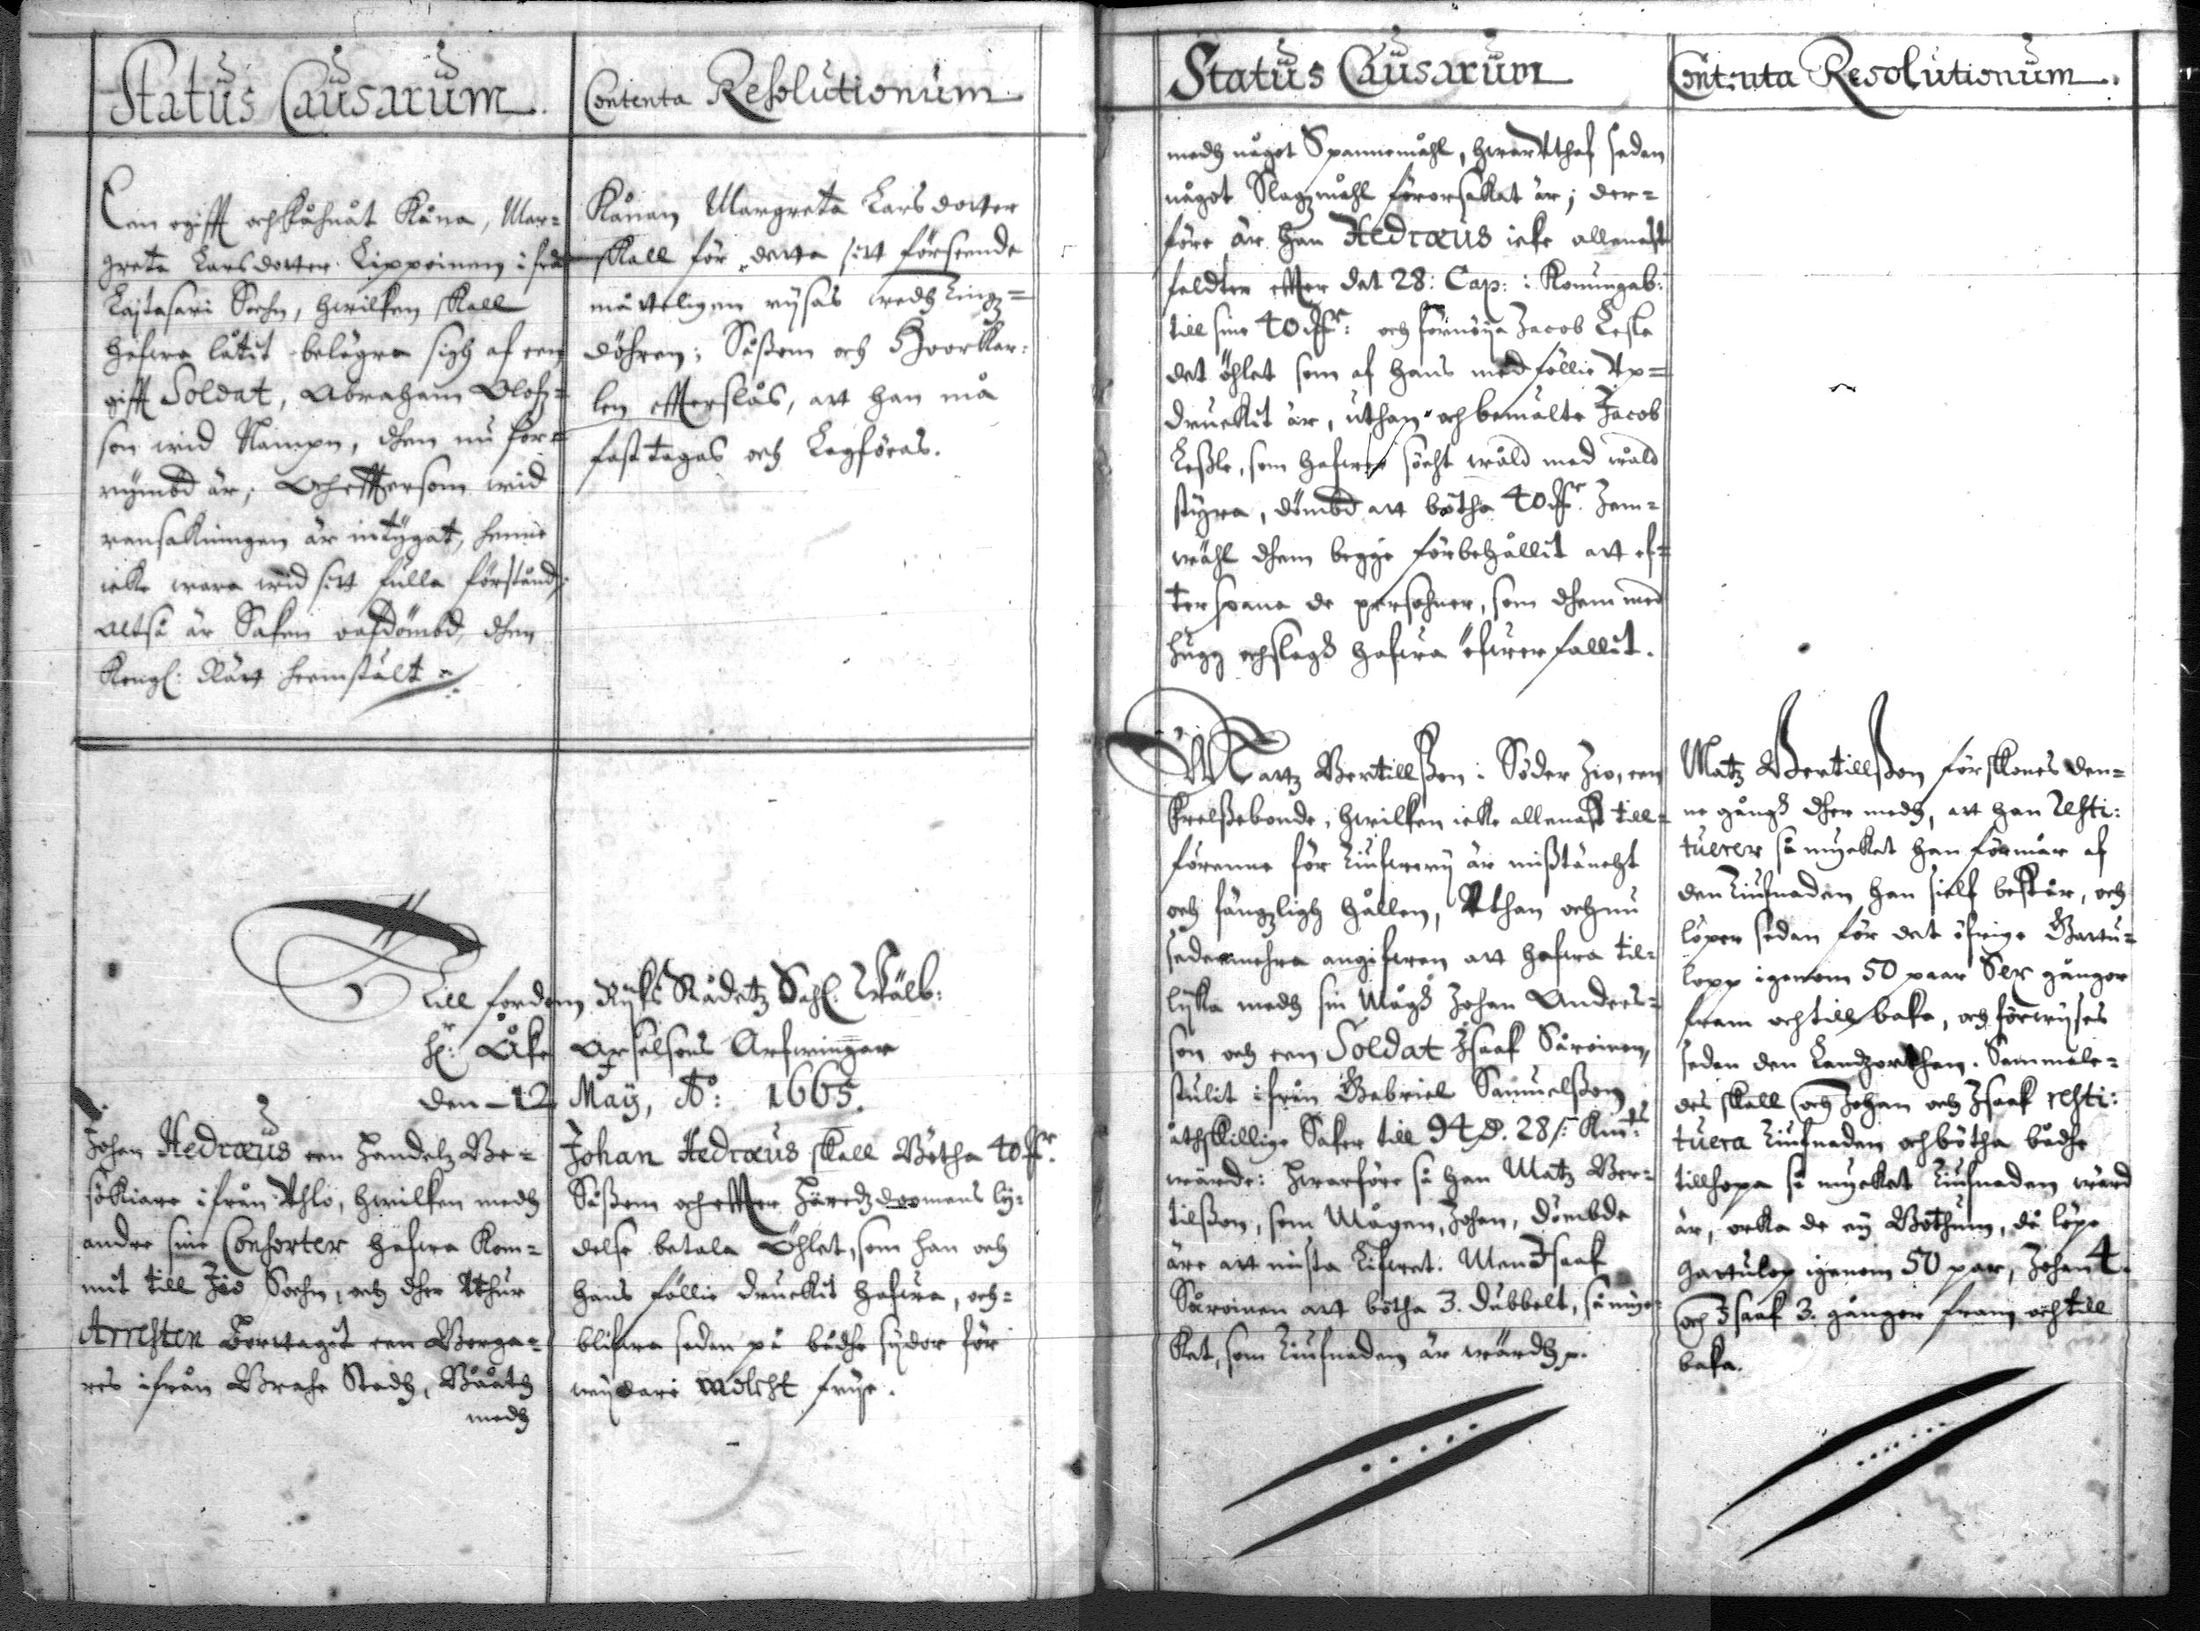 Status Causarum.
Een ogifft och kåhnåt Kåna, Mar-
greta Larsdotter Lippoinen ifrå
Lajtasari Sochn, hwilken skall
hafwa låtit belägra sigh af een
gifft Soldat, Abraham Olofz-
son wid Nampn, dhen nu för-
rymbd är; Och effter som wid
ransakningen är intygat, henne
icke wara wid sitt fulla förstånd;
Altså är Saken oafdömbd, dhen
Kongl: Rätt heemstält
Contenta Resolutionum.
Kånan Margreta Larsdotter
skall för detta sitt förseende
måtteligen rijsas wedh Tingz-
döhren; Såssom och Hoorkar-
len effterslås, att han må
fasttagas och Lagföras.
Till fordom Rijks Rådetz Sahl. Wälb:
Hr: Åke Axelsons Arfwingar
den 12 May, Ao: 1665.
Johan Hedræus een Handelz Be-
sökiare ifrån Uhlo, hwilken medh
andre sine Consorter hafwa kom-
mit till Jio Sochn, och dher uthur
Arresten borttagit een Borga-
res ifrån Brahe Stadh, Bååth
medh
Johan Hedræus skall Bötha 40 mkr.
Såssom och effter Häredzdoomens ly-
delse betala Öhlet, som han och
hans föllie druckit hafwa, och
blifwa sedan på bådhe sydor för
wijdare molest frije.
Status Causarum
medh något Spannemåhl, hwar uthaf sedan
något Slagzmåhl förorsakat är; der-
före är han Hedræus icke allenast
feldter effter det 28: Cap: i Konungab:
till sine 40 mkr: och förnöija Jacob Lesle
det öhlet som af hans medföllie up-
druckit är, uthan och bemälte Jacob
Lessle, som hafwer söcht wåld med wåld
styra, dömbd att bötha 40 mkr. Jem-
wähl dhem begge förbehållit att ef-
terspana de persohner, som dhem med
hugg och slagh hafwa öfwerfallit.
Matz Bertillsson i Söder Jio, een
Frelssebonde, hwilken icke allenast till-
förenne för Tiufwery är misstänckt
och fängzligh hållen, Uthan och nu
sedermehra angifwen att hafwa til-
lijka medh sin Mågh Johan Anders-
son och een Soldat Isaak Såroinen,
stulit ifrån Gabriel Samuelsson
åthskillige Saker till 94 D. 28 s: Kmts
wärde: Hwarföre så han Matz Ber-
tilsson, som Mågen, Johan, dömbde
äre att mista Lifwet. Men Isaak
Såroinen att bötha 3. dubbelt, så myc-
ket, som Tiufnaden är wärdh p.
Contenta Resolutionum.
Matz Bertillsson förskones den-
ne gångh dher medh, att han resti:
tuerer så mycket han förmår af
den Tiufnaden han sielf består, och
löper sedan för det öfrige Gattu-
lopp igenom 50 paar Sex gånger
fram och till baka, och förwijses
sedan den Landzorthen. Sammale-
des skall och Johan och Isaak resti:
tuera Tiufnaden och bötha bådhe
tillhopa så mycket Tiufnaden wärd
är, orka de eij Böthum, då löpe
Gattulop igenom 50 par, Johan 4.
och Isaak 3. gånger fram och till
baka.